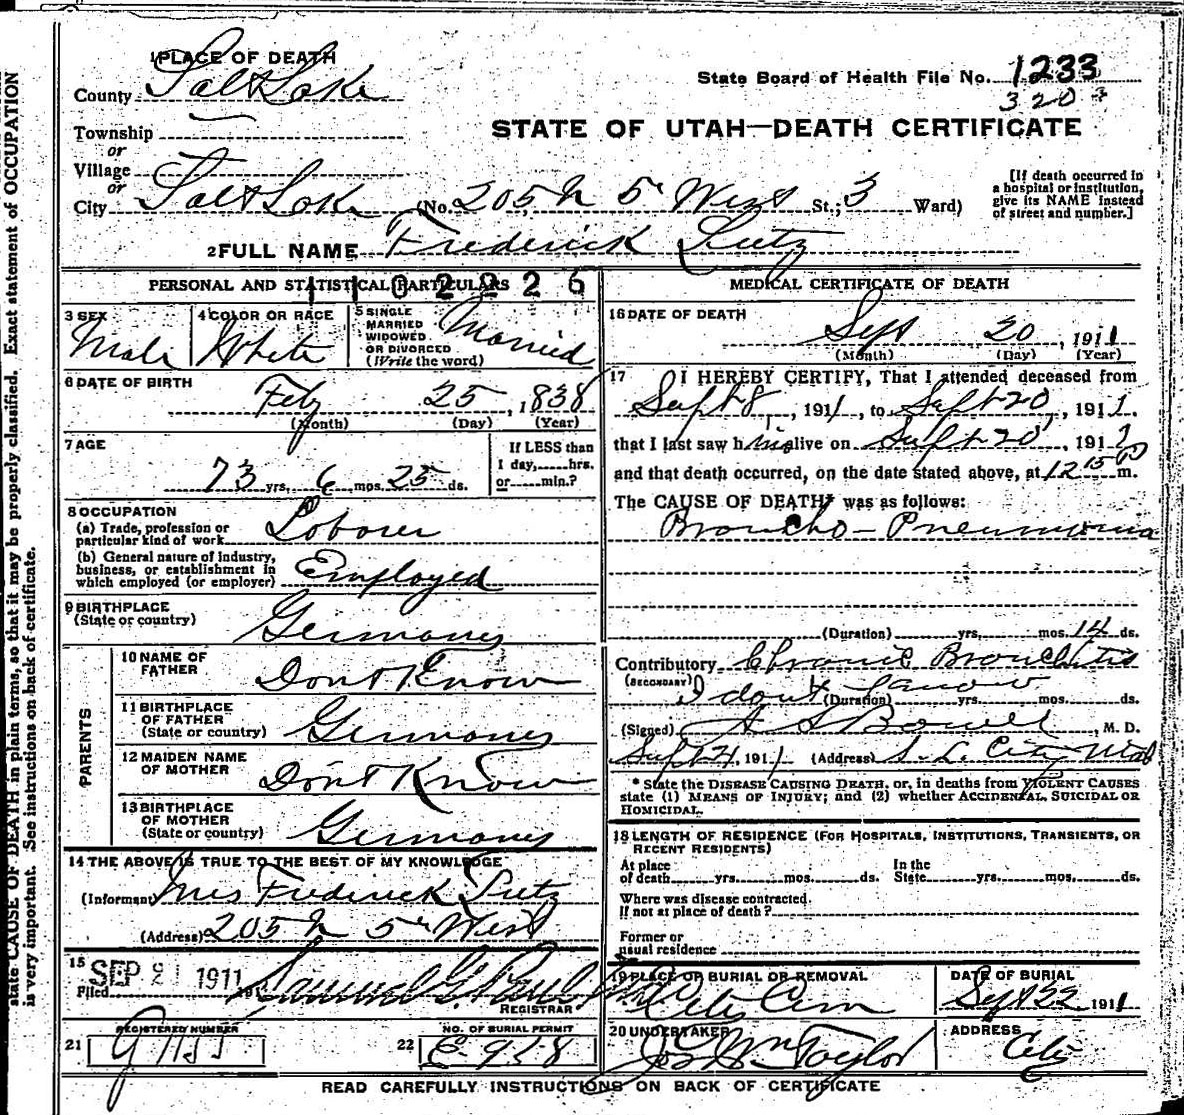 state CAUSE OF DEATH in plain terms, so that it may be properly classified. Exact statement of OCCUPATION
is very important. See instructions on back of certificate.
1 PLACE OF DEATH
County Salt Lake
State Board of Health File No. 1233
3203
Township
or
Village
or
STATE OF UTAH—DEATH CERTIFICATE
City Salt Lake (No. 205 N 5th West St.; 3 Ward)
[If death occurred in
a hospital or institution,
give its NAME instead
of street and number.]
2 FULL NAME Frederick Lutz
PERSONAL AND STATISTICAL PARTICULARS
1102226
3 SEX
Male
4 COLOR OR RACE
White
5 SINGLE
MARRIED
WIDOWED
OR DIVORCED
(Write the word)
Married
6 DATE OF BIRTH
Feby 25, 1838
(Month) (Day) (Year)
7 AGE
73 yrs. 6 mos. 25 ds.
If LESS than
1 day,.....hrs.
or.....min.?
8 OCCUPATION
(a) Trade, profession or
particular kind of work Laborer
(b) General nature of industry,
business, or establishment in
which employed (or employer) Employed
9 BIRTHPLACE
(State or country)
Germany
PARENTS
10 NAME OF
FATHER
Dont Know
11 BIRTHPLACE
OF FATHER
(State or country)
Germany
12 MAIDEN NAME
OF MOTHER
Dont Know
13 BIRTHPLACE
OF MOTHER
(State or country)
Germany
14 THE ABOVE IS TRUE TO THE BEST OF MY KNOWLEDGE
(Informant) Mrs Frederick Lutz
(Address) 205 N 5th West
15
Filed SEP 21 1911 Samuel G. Paul
REGISTRAR
21 REGISTERED NUMBER
22 NO. OF BURIAL PERMIT
E 958
MEDICAL CERTIFICATE OF DEATH
16 DATE OF DEATH
Sept 20, 1911
(Month) (Day) (Year)
17 I HEREBY CERTIFY, That I attended deceased from
Sept 8, 1911, to Sept 20, 1911.
that I last saw him alive on Sept 20, 1911
and that death occurred, on the date stated above, at 12 15 P m.
The CAUSE OF DEATH* was as follows:
Broncho-Pneumonia
(Duration) yrs. mos. 14 ds.
Contributory Chronic Bronchitis
(SECONDARY)
I dont know (Duration) yrs. mos. ds.
(Signed) A S Bower, M. D.
Sept 21, 1911 (Address) S. L. City Utah
* State the DISEASE CAUSING DEATH, or, in deaths from VIOLENT CAUSES
state (1) MEANS OF INJURY; and (2) whether ACCIDENTAL, SUICIDAL OR
HOMICIDAL.
18 LENGTH OF RESIDENCE (FOR HOSPITALS, INSTITUTIONS, TRANSIENTS, OR
RECENT RESIDENTS)
At place
of death yrs. mos. ds.
In the
State yrs. mos. ds.
Where was disease contracted.
If not at place of death?
Former or
usual residence
19 PLACE OR BURIAL OR REMOVAL
City Cem
DATE OF BURIAL
Sept 22 1911
20 UNDERTAKER
Jos Wm Taylor
ADDRESS
City
READ CAREFULLY INSTRUCTIONS ON BACK OF CERTIFICATE